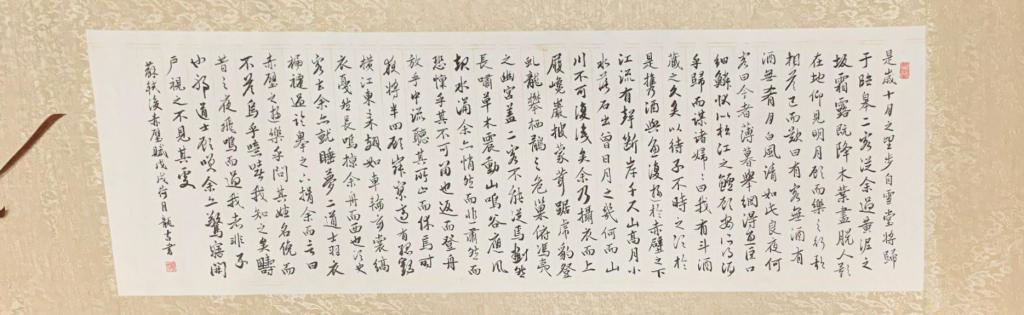 是歲十月之望步自雪堂將歸
于臨皋二客從余過黃泥之
坂霜露既降木葉盡脫人影
在地仰見明月顧而樂之行歌
相答已而歎曰有客無酒有
酒無肴月白風清如此良夜何
客曰今者薄暮舉網得魚巨口
細鱗狀似松江之鱸顧安所得酒
乎歸而謀諸婦婦曰我有斗酒
藏之久矣以待子不時之須於
是攜酒與魚復遊於赤壁之下
江流有聲斷岸千尺山高月小
水落石出曾日月之幾何而山
川不可復識矣余乃攝衣而上
履巉巖披蒙茸踞虎豹登
虬龍攀栖鶻之危巢俯馮夷
之幽宮蓋二客不能從焉劃然
長嘯草木震動山鳴谷應風
起水涌余亦悄然而悲肅然而
恐凜乎其不可留也返而登舟
放乎中流聽其所止而休焉時
夜將半四顧寂寥適有孤鶴
橫江東來翅如車輪玄裳縞
衣戛然長鳴掠余舟而西也須臾
客去余亦就睡夢二道士羽衣
褊褼過臨皋之下揖余而言曰
赤壁之遊樂乎問其姓名俛而
不答嗚乎噫嘻我知之矣疇
昔之夜飛鳴而過我者非子
也邪道士顧笑余亦驚寤開
戶視之不見其處
蘇軾後赤壁賦戊戌荷月書